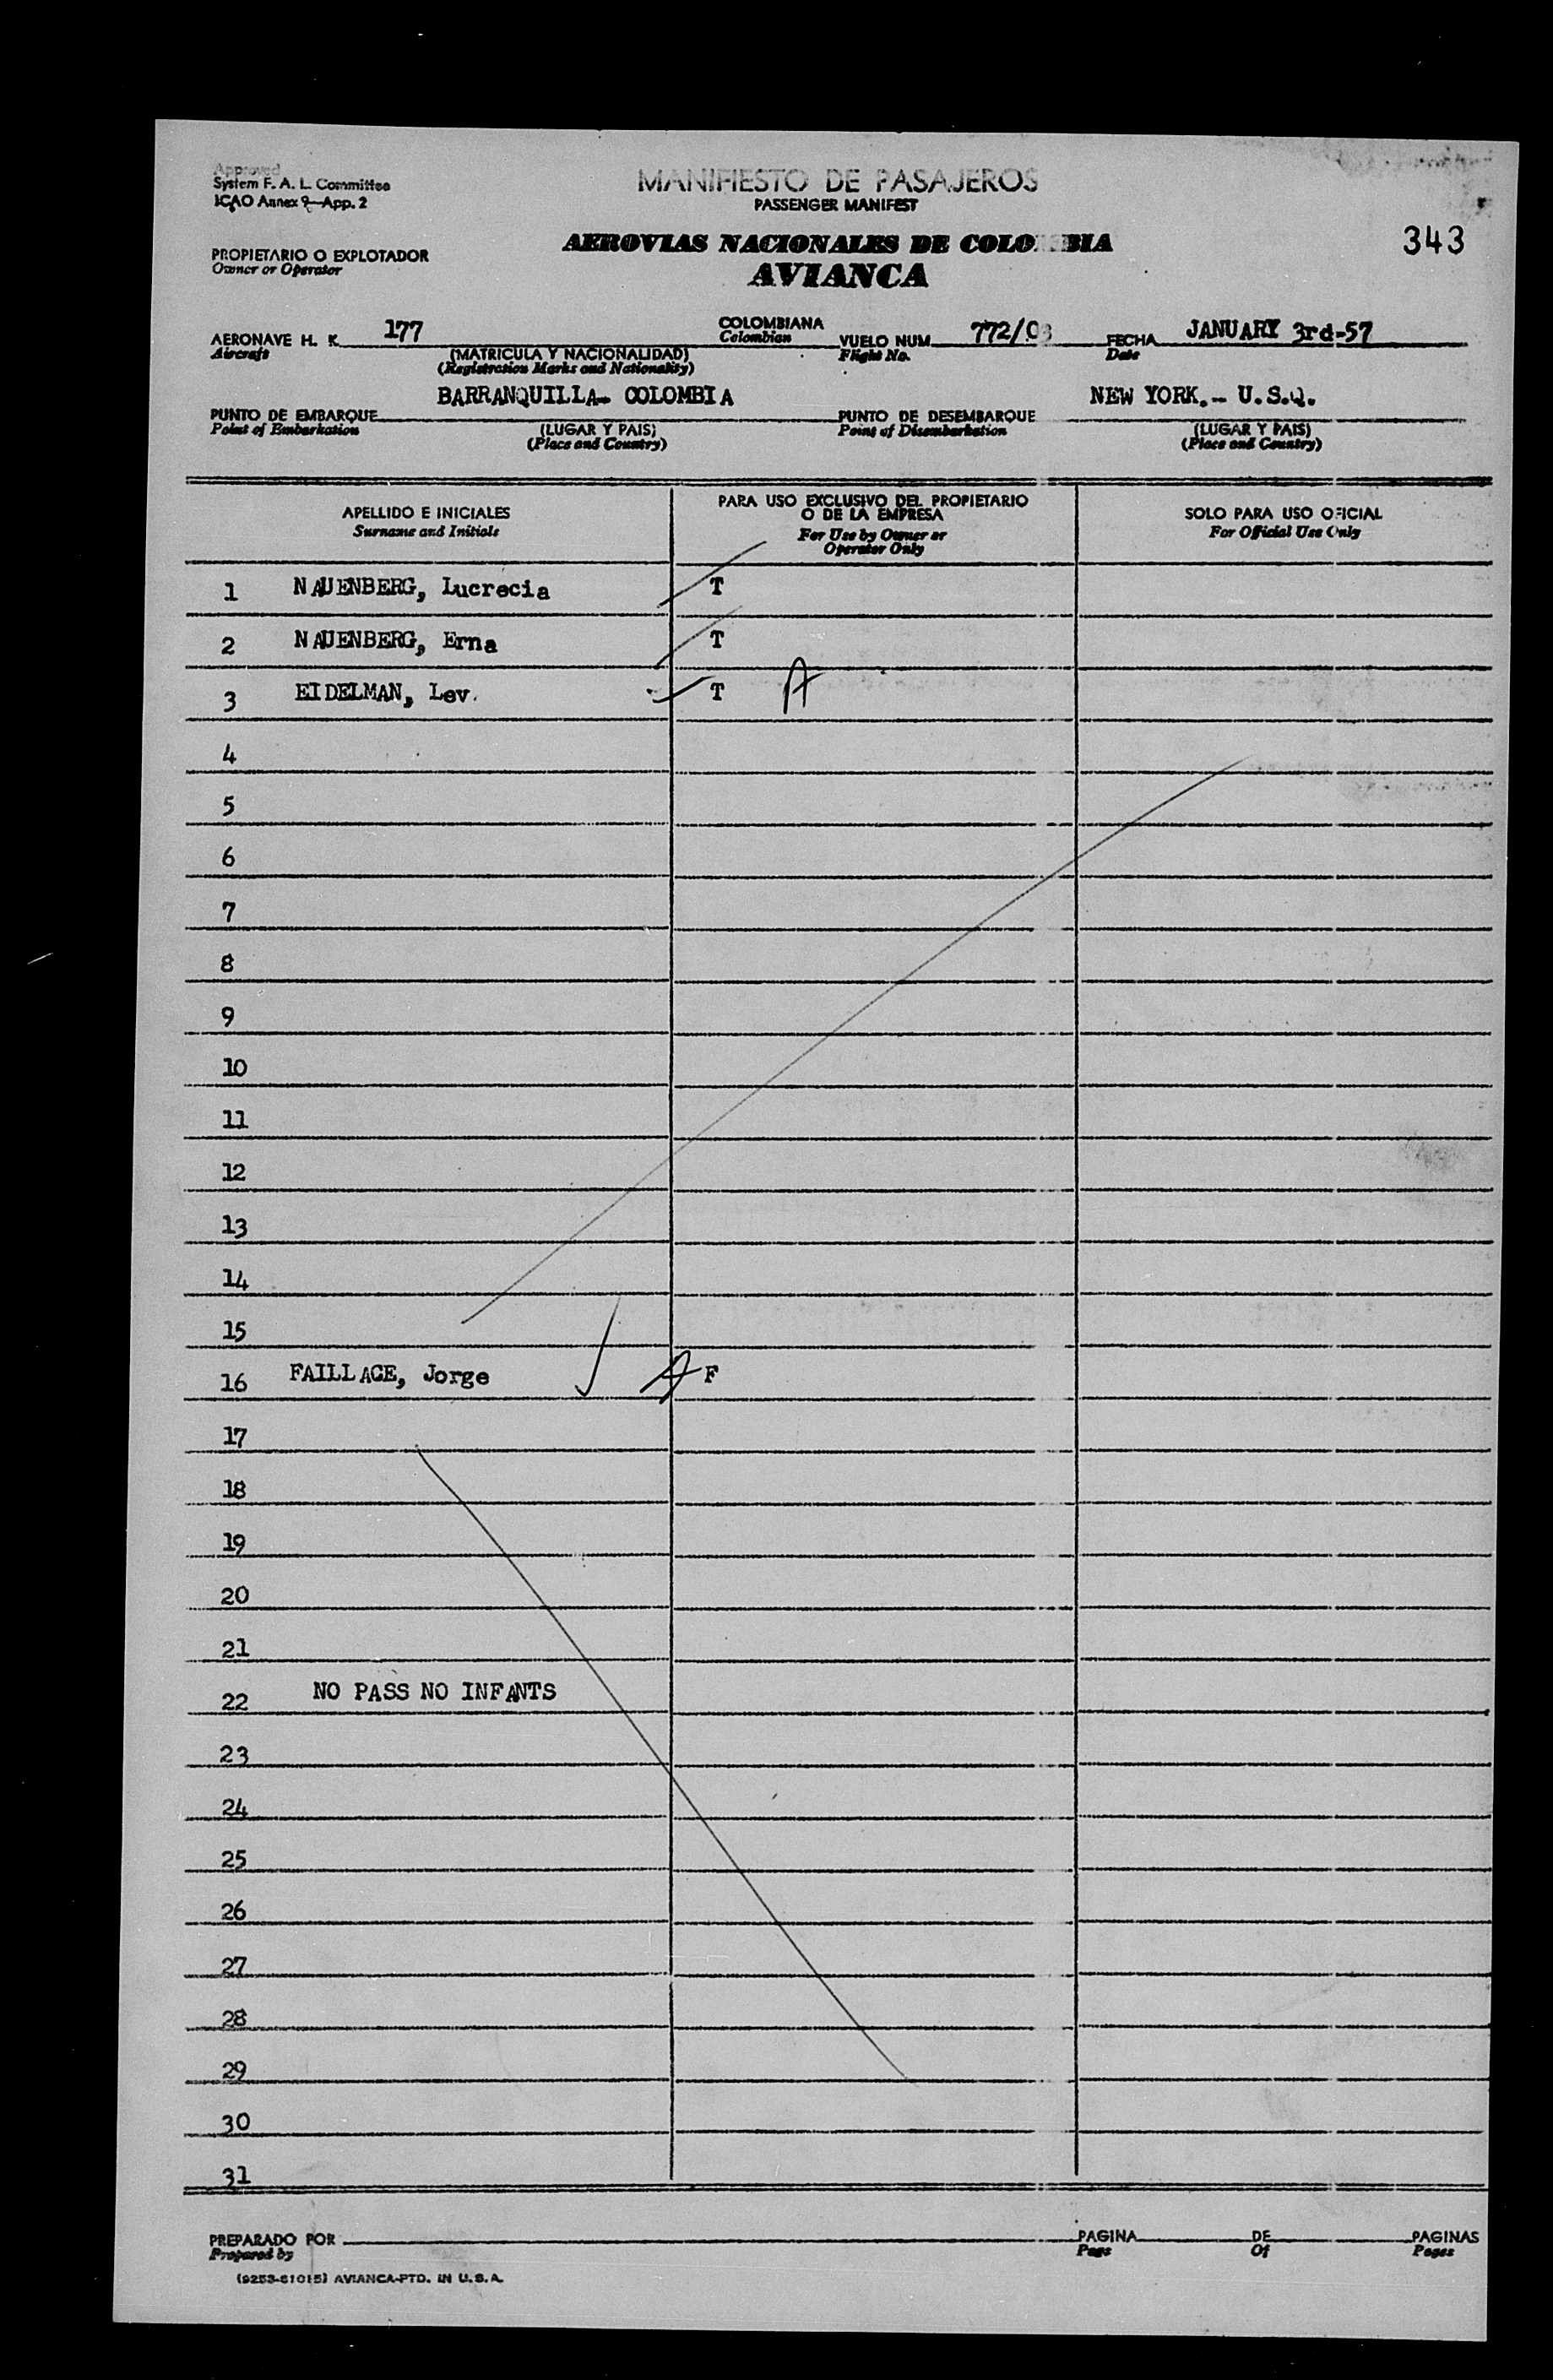 Approved
System F. A. L. Committee
ICAO Annex 9—App. 2
MANIFIESTO DE PASAJEROS
PASSENGER MANIFEST
343
PROPIETARIO O EXPLOTADOR
Owner or Operator
AEROVIAS NACIONALES DE COLOMBIA
AVIANCA
AERONAVE H. K. 177 COLOMBIANA VUELO NUM. 772/03 FECHA JANUARY 3rd-57
Aircraft (MATRICULA Y NACIONALIDAD) Colombian Flight No. Date
(Registration Marks and Nationality)
BARRANQUILLA- COLOMBIA NEW YORK.- U.S.Q.
PUNTO DE EMBARQUE PUNTO DE DESEMBARQUE
Point of Embarkation (LUGAR Y PAIS) Point of Disembarkation (LUGAR Y PAIS)
(Place and Country) (Place and Country)
APELLIDO E INICIALES
Surname and Initials
PARA USO EXCLUSIVO DEL PROPIETARIO
O DE LA EMPRESA
For Use by Owner or
Operator Only
SOLO PARA USO OFICIAL
For Official Use Only
1 NAUENBERG, Lucrecia T
2 NAUENBERG, Erna T
3 EIDELMAN, Lev. T A
4
5
6
7
8
9
10
11
12
13
14
15
16 FAILLACE, Jorge A F
17
18
19
20
21
22 NO PASS NO INFANTS
23
24
25
26
27
28
29
30
31
PREPARADO POR PAGINA DE PAGINAS
Prepared by Page Of Pages
(9253-61015) AVIANCA-PTD. IN U.S.A.